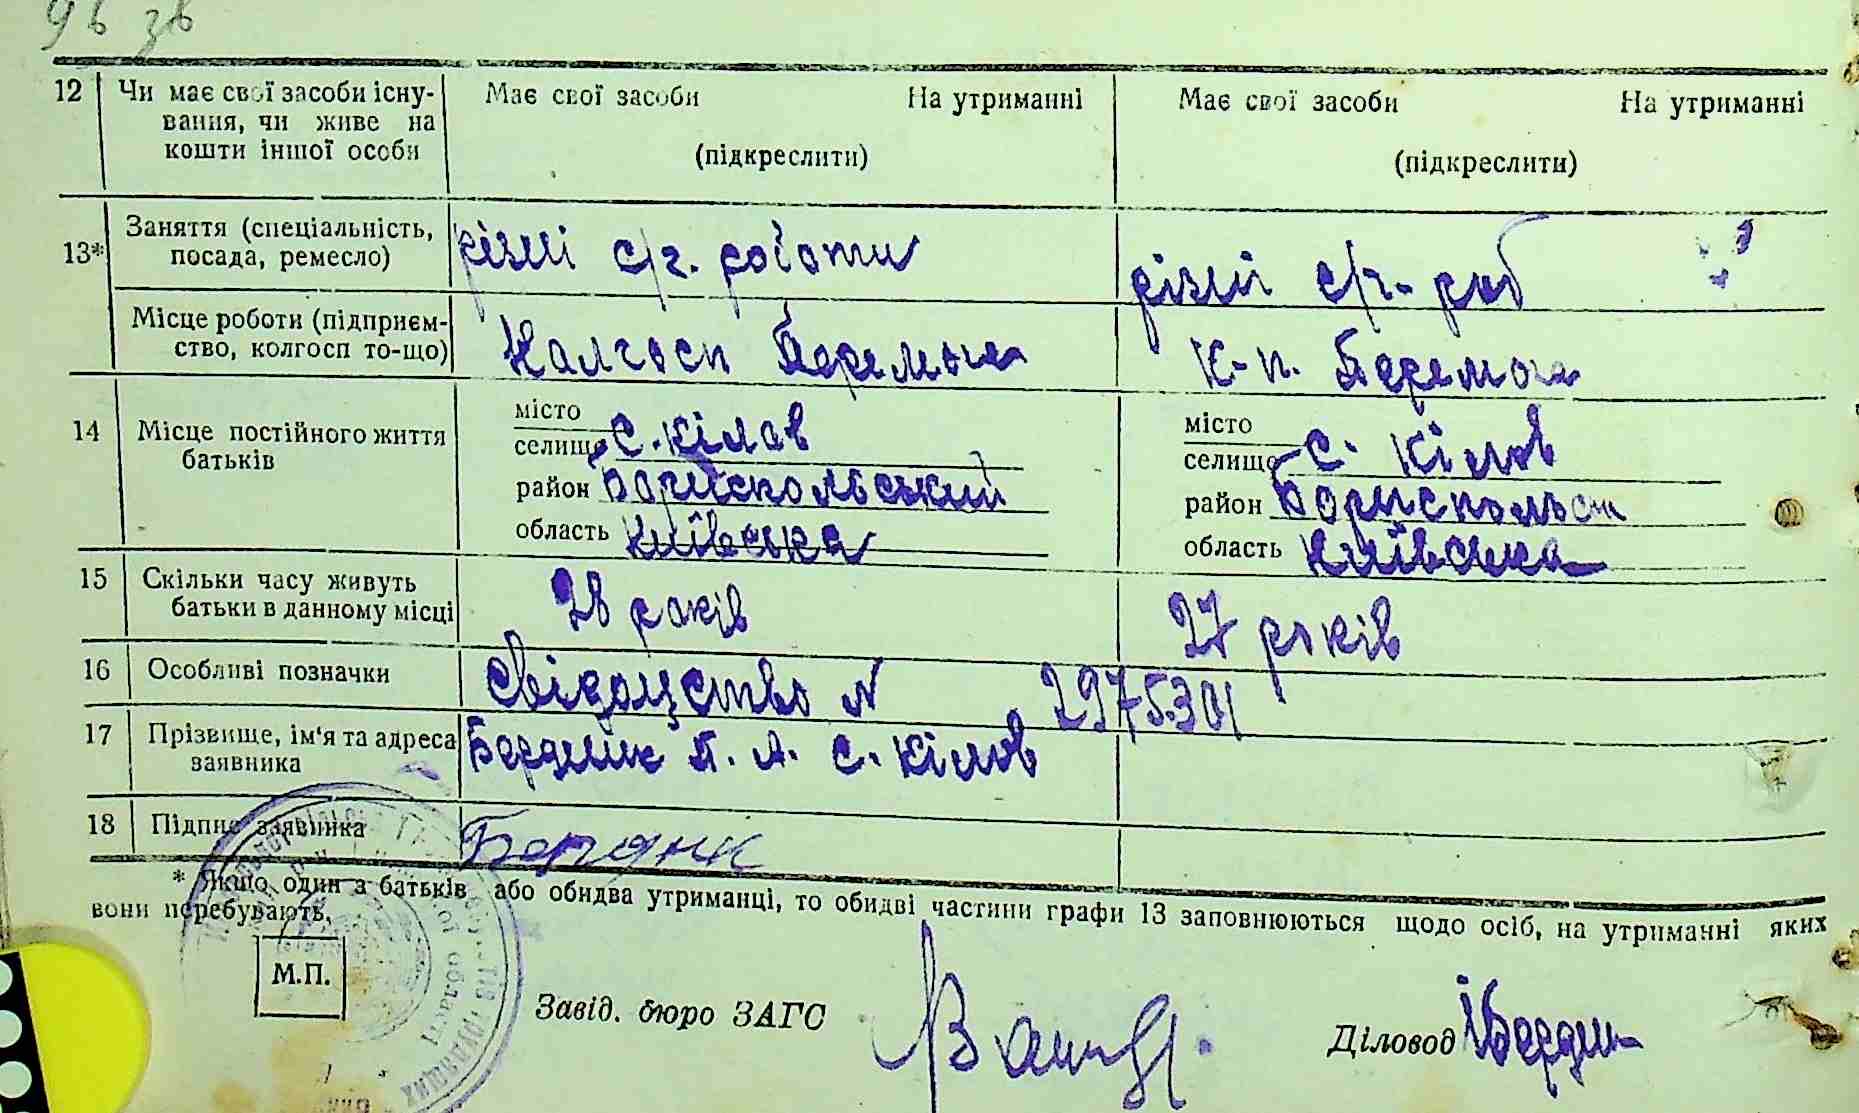 96 зв
12 Чи має свої засоби існу- Має свої засоби На утриманні Має свої засоби На утриманні
вання, чи живе на
кошти іншої особи (підкреслити) (підкреслити)
13* Заняття (спеціальність, різні с/г. роботи різні с/г. роб
посада, ремесло)
Місце роботи (підприєм- Колгосп Перемога К-п. Перемога
ство, колгосп то-що)
14 Місце постійного життя місто місто
батьків селище с. Кілов селище с. Кілов
район Бориспольський районБорисполь
область Київська область Київська
15 Скільки часу живуть 28 років 27 років
батьки в данному місці
16 Особливі позначки Свідоцтво N 2975301
17 Прізвище, ім'я та адреса Бердник П. А. с. Кілов
заявника
18 Підпис заявника Бердник
* Якщо один з батьків або обидва утриманці, то обидві частини графи 13 заповнюються щодо осіб, на утриманні яких
вони перебувають.
М.П.
Завід. бюро ЗАГС
Діловод